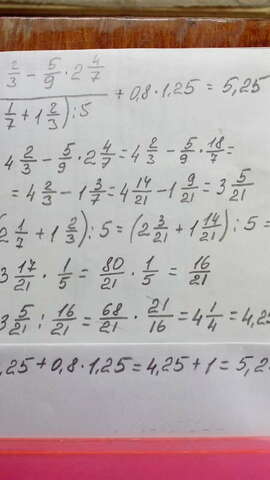 2/3 - 5/9 · 2 4/7
1/7 + 1 2/3) : 5 + 0,8 · 1,25 = 5,25
4 2/3 - 5/9 · 2 4/7 = 4 2/3 - 5/9 · 18/7 =
= 4 2/3 - 1 3/7 = 4 14/21 - 1 9/21 = 3 5/21
(2 1/7 + 1 2/3) : 5 = (2 3/21 + 1 14/21) : 5 =
3 17/21 · 1/5 = 80/21 · 1/5 = 16/21
3 5/21 : 16/21 = 68/21 · 21/16 = 4 1/4 = 4,25
,25 + 0,8 · 1,25 = 4,25 + 1 = 5,2